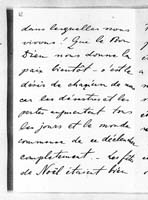 dans lesquelles nous
vivons! Que le Bon
Dieu nous donne la
paix bientôt - c'est le
désir de chacun de nous
car les désastres et les
pertes augmentent tous
les jours et le monde
commence de se détester
complètement. - Les fêtes
de Noël étaient bien